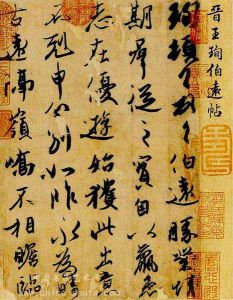 晉王珣伯遠帖
珣頓首頓首伯遠勝業情
期群從之寶自以羸患
志在優遊始獲此出意
不剋申分別如昨永為疇
古遠隔嶺嶠不相瞻臨